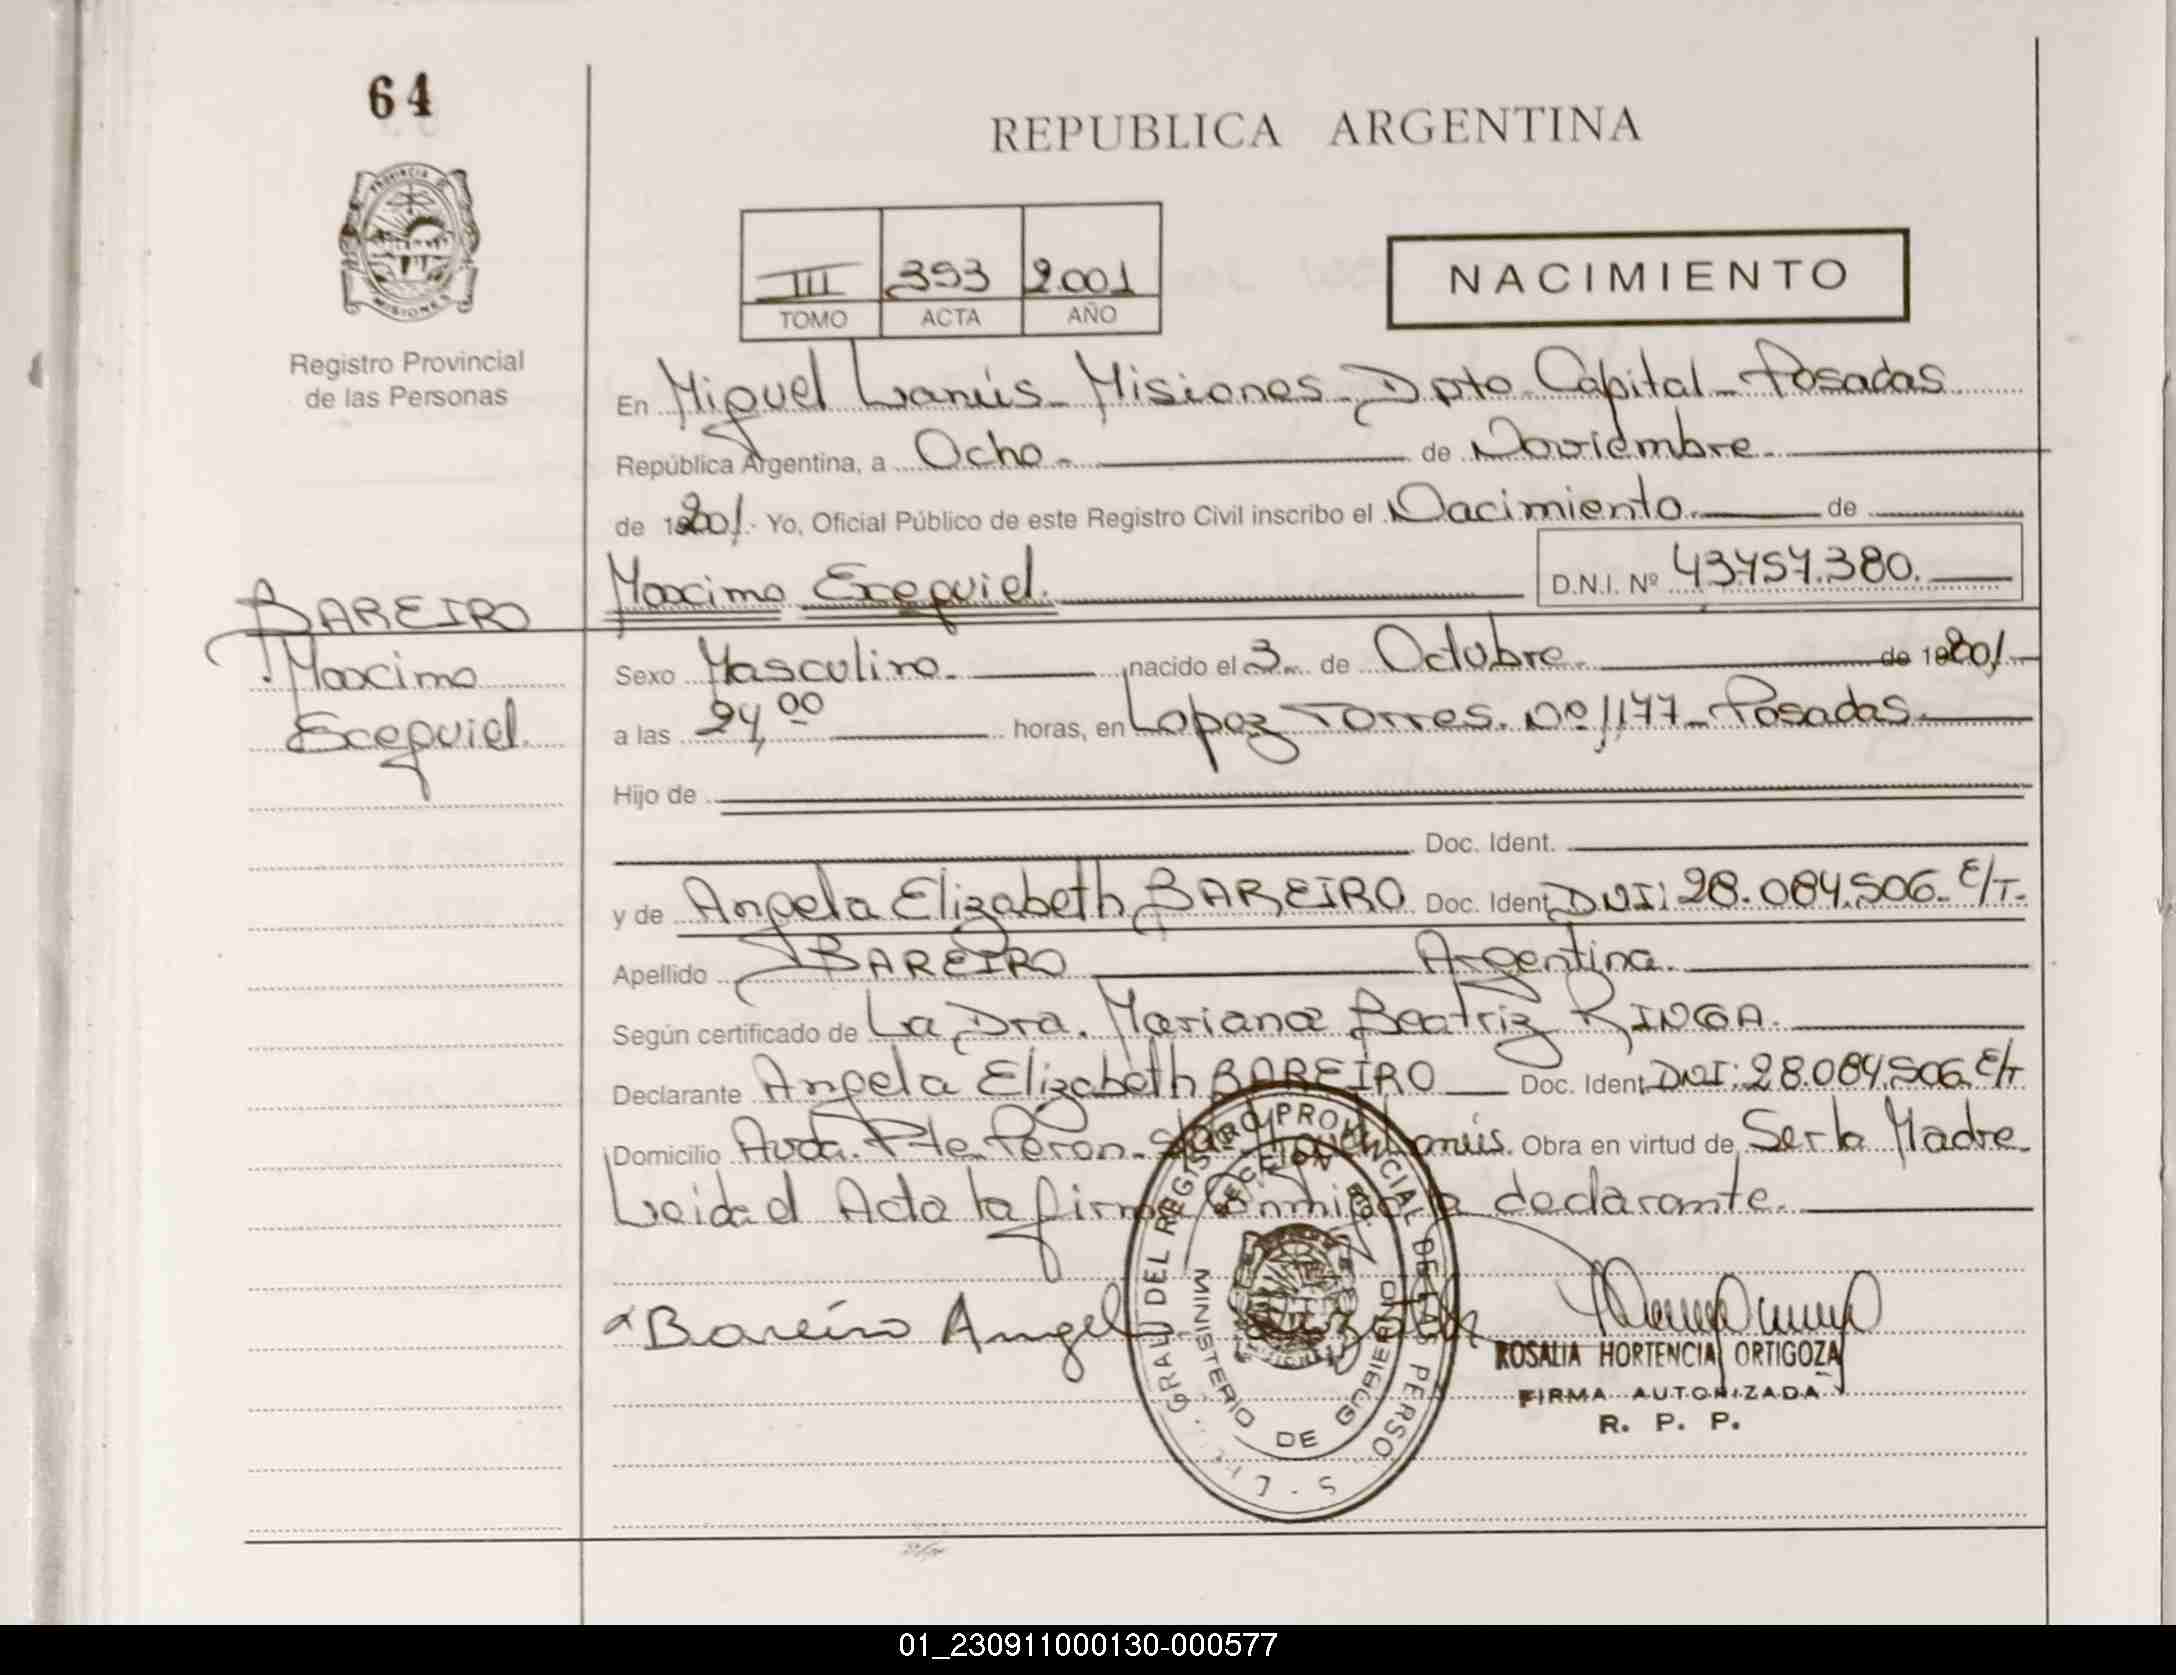 64
REPUBLICA ARGENTINA
PROVINCIA DE
MISIONES
Registro Provincial
de las Personas
III 393 2.001
TOMO ACTA AÑO
NACIMIENTO
En Miguel Lanús - Misiones - Dpto. Capital - Posadas
República Argentina, a Ocho.- de Noviembre.-
de 2001.- Yo, Oficial Público de este Registro Civil inscribo el Nacimiento. de
BAREIRO
Maximo
Ezequiel.
Maximo Ezequiel.
D.N.I. Nº
Sexo Masculino. nacido el 3 de Octubre. de 2001.
a las 24,00 horas, en Lopez Torres. Nº 1177 - Posadas.
Hijo de
Doc. Ident.
y de Angela Elizabeth BAREIRO Doc. Ident. DNI: 28.084.506. E/T.
Apellido BAREIRO Argentina.
Según certificado de La Dra. Mariana Beatriz RINGA.
Declarante Angela Elizabeth BAREIRO Doc. Ident. DNI: 28.084.506 E/T
Domicilio Avda. Pte. Peron - Miguel Lanús. Obra en virtud de Ser la Madre.
Leida el Acta la firma Conmigo la declarante.
Bareiro Angela
GRAL. DEL REGISTRO PROVINCIAL DE LAS PERSO
MINISTERIO DE GOBIERNO
ROSALIA HORTENCIA ORTIGOZA
FIRMA AUTORIZADA
R. P. P.
01_230911000130-000577